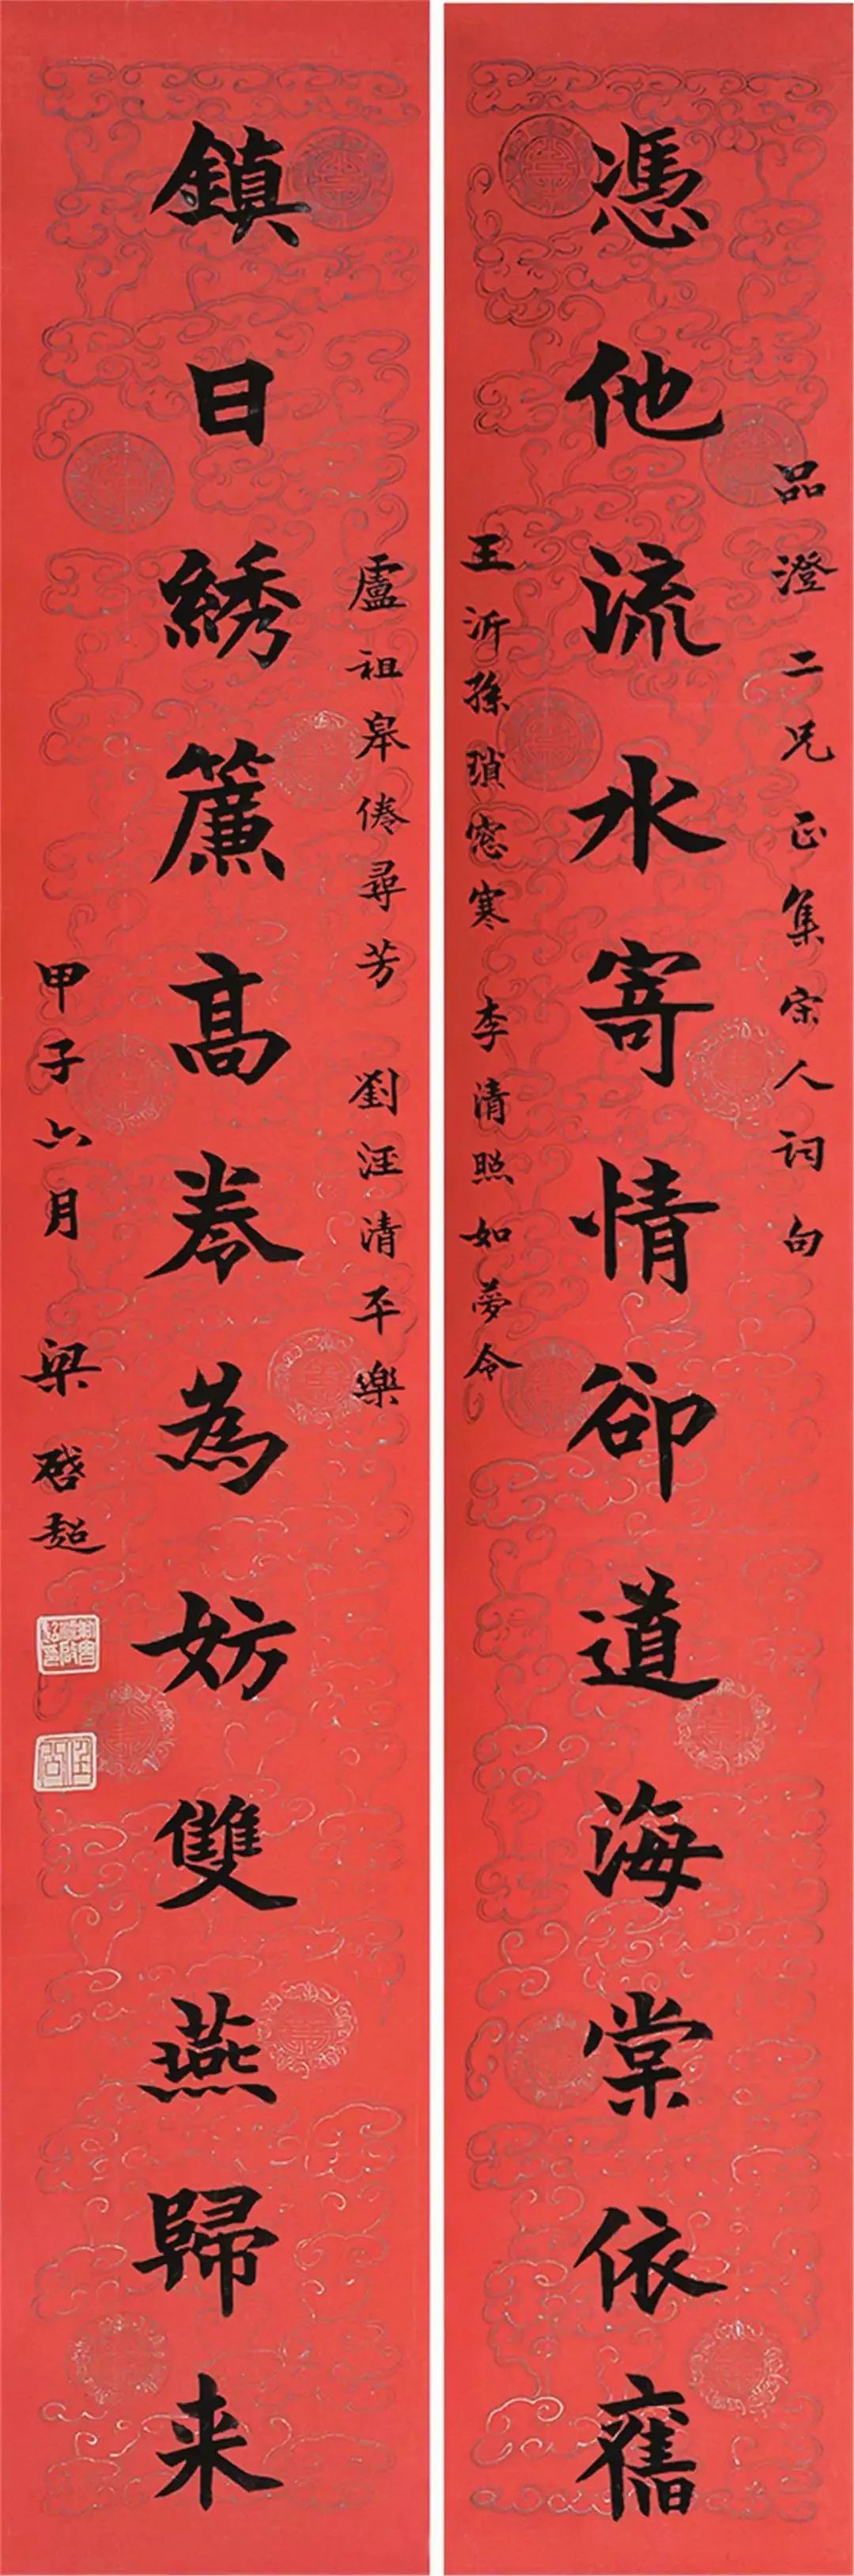 品澄二兄正集宋人詞句
憑他流水寄情卻道海棠依舊
王沂孫瑣窓寒 李清照如夢令
盧祖皋倦尋芳 劉汪清平樂
鎮日綉簾高卷為妨雙燕歸来
甲子六月 梁啓超
新會梁啟超印
任公